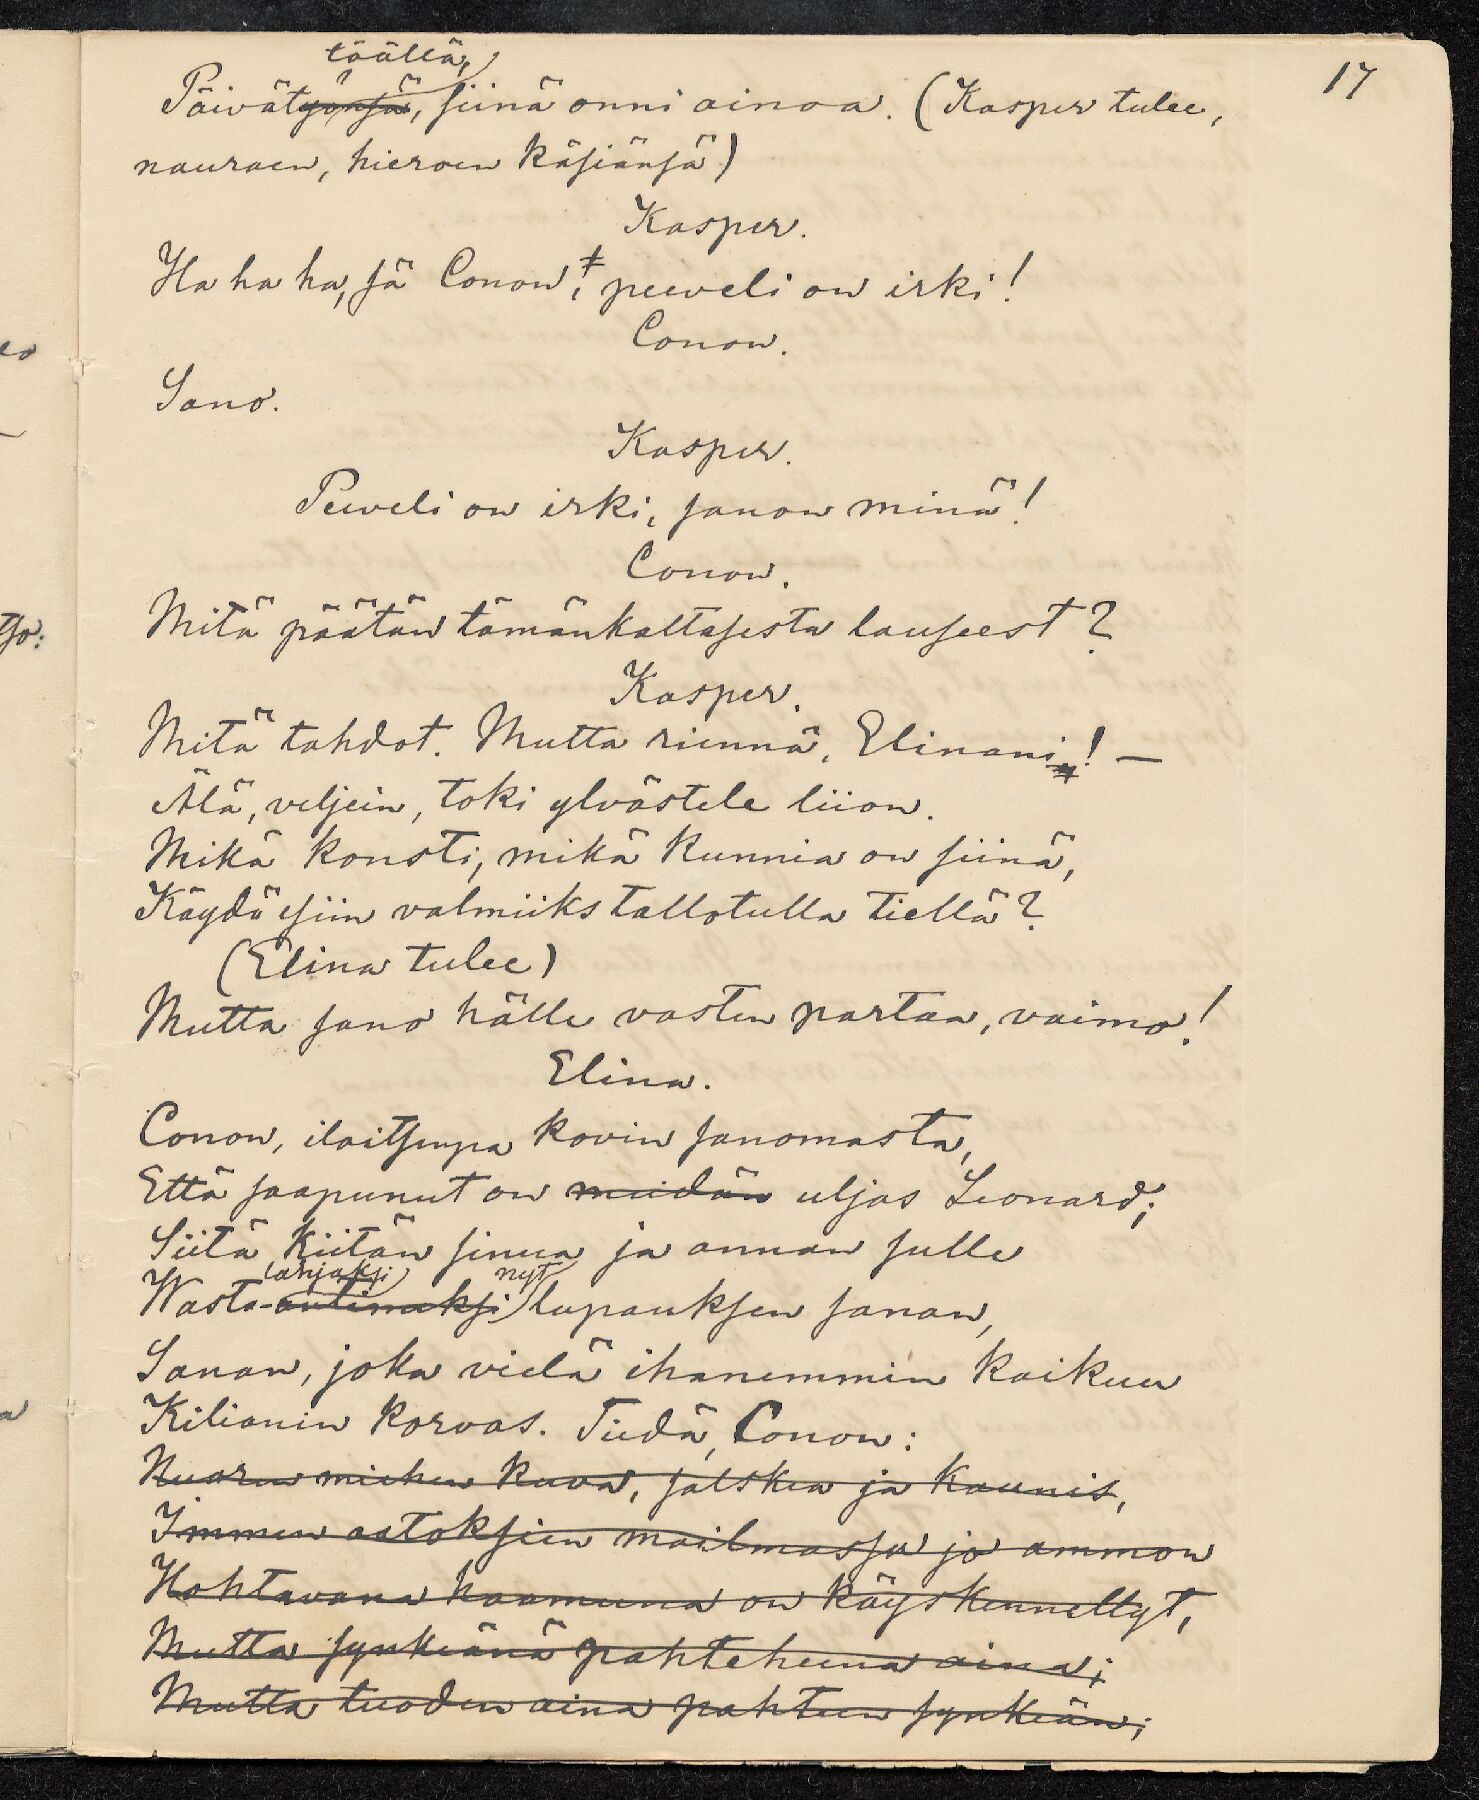 17
töällä,
Päivätyönsä, siinä onni ainoa. (Kasper tulee,
nauraen, hieroen käsiänsä)
Kasper.
Ha ha ha, sä Conon, peeveli on irki!
Conon.
Sano.
Kasper.
Peeveli on irki, sanon minä!
Conon.
Mitä päätän tämänkaltasesta lauseest?
Kasper.
Mitä tahdot. Mutta riennä, Elinani! —
Älä, veljein, toki ylvästele liion.
Mikä konsti, mikä kunnia on siinä,
Käydä esiin valmiiks tallotulla tiellä?
(Elina tulee)
Mutta sano hälle vasten partaa, vaimo!
Elina.
Conon, iloitsenpa kovin sanomasta,
Että saapunut on meidän uljas Leonard;
Siitä kiitän sinua ja annan sulle
lahjaksi nyt
Wasta-antimeksi lupauksen sanan,
Sanan, joka vielä ihanemmin kaikuu
Kilianin korvas. Tiedä, Conon:
Nuoren miehen kuva, salskea ja kaunis,
Immen aatoksien mailmassa jo ammon
Hohtavana haamuna on käyskennellyt,
Mutta synkeänä pahteheena aina;
Mutta tuoden aina pahteen synkeän;